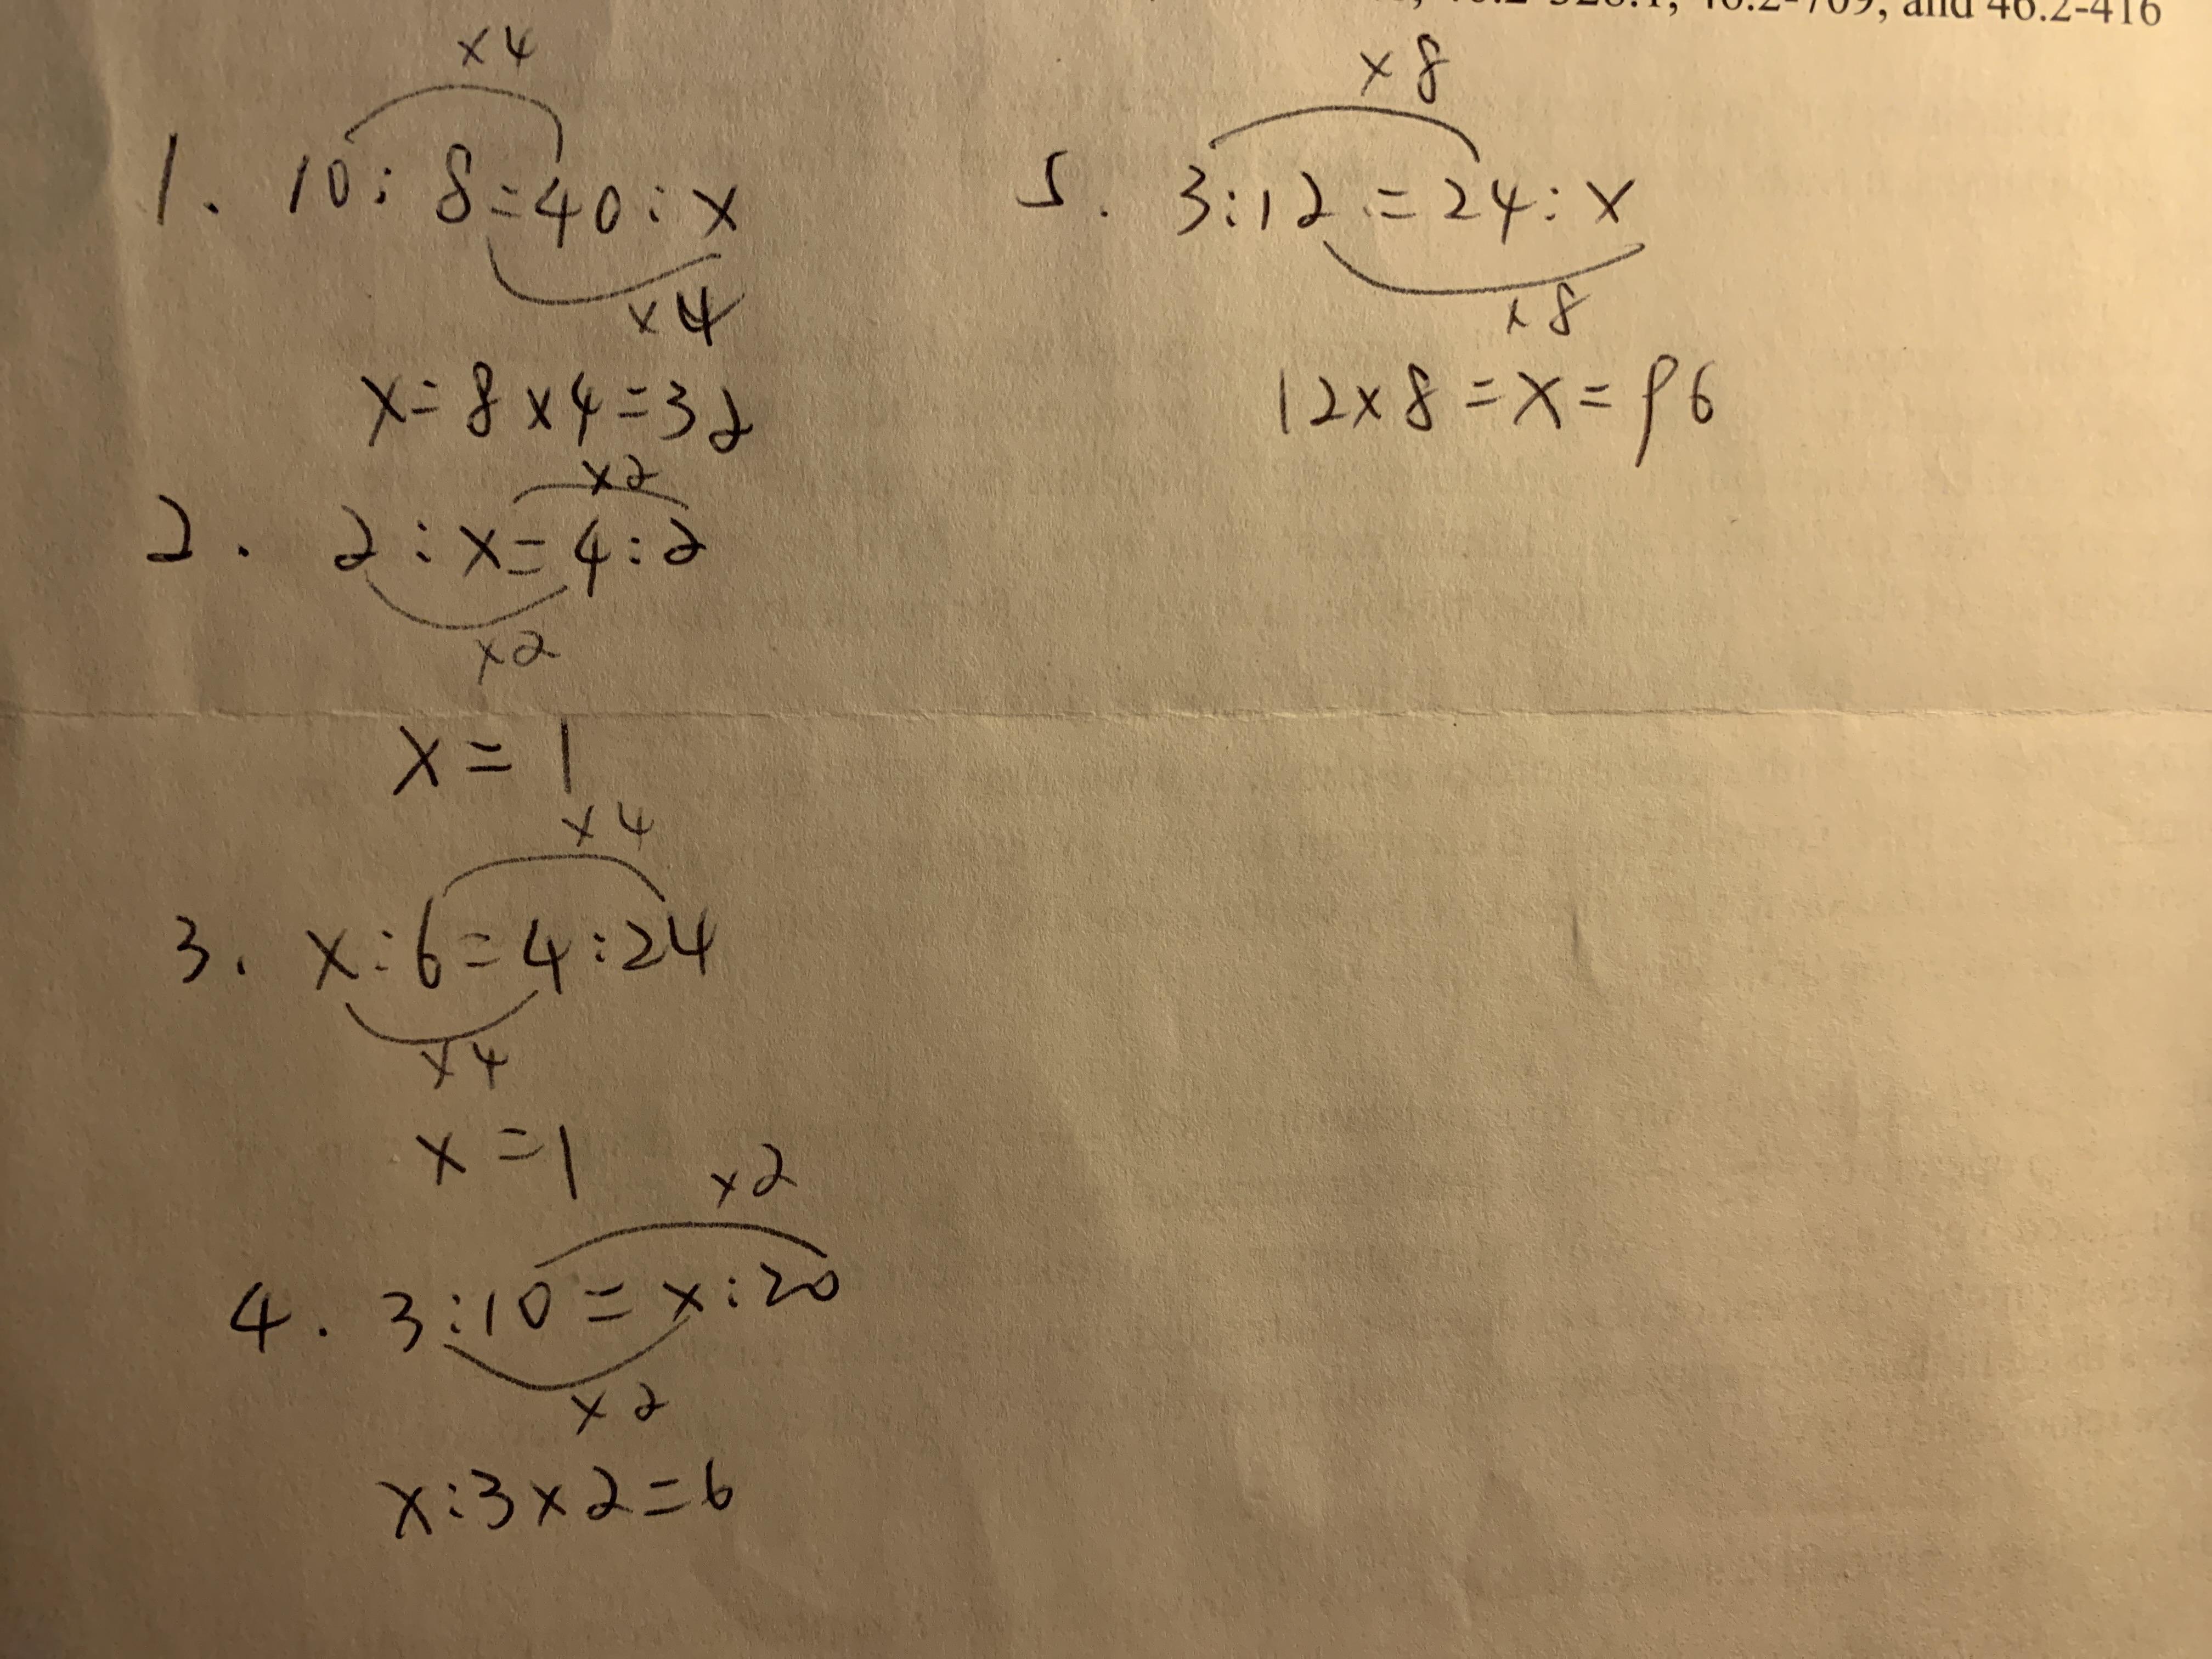 and 46.2-416
×4
1. 10 : 8 = 40 : x
×4
x = 8 × 4 = 32
×2
2. 2 : x = 4 : 2
×2
x = 1
×4
3. x : 6 = 4 : 24
×4
x = 1
×2
4. 3 : 10 = x : 20
×2
x : 3 × 2 = 6
×8
5. 3 : 12 = 24 : x
×8
12 × 8 = x = 96